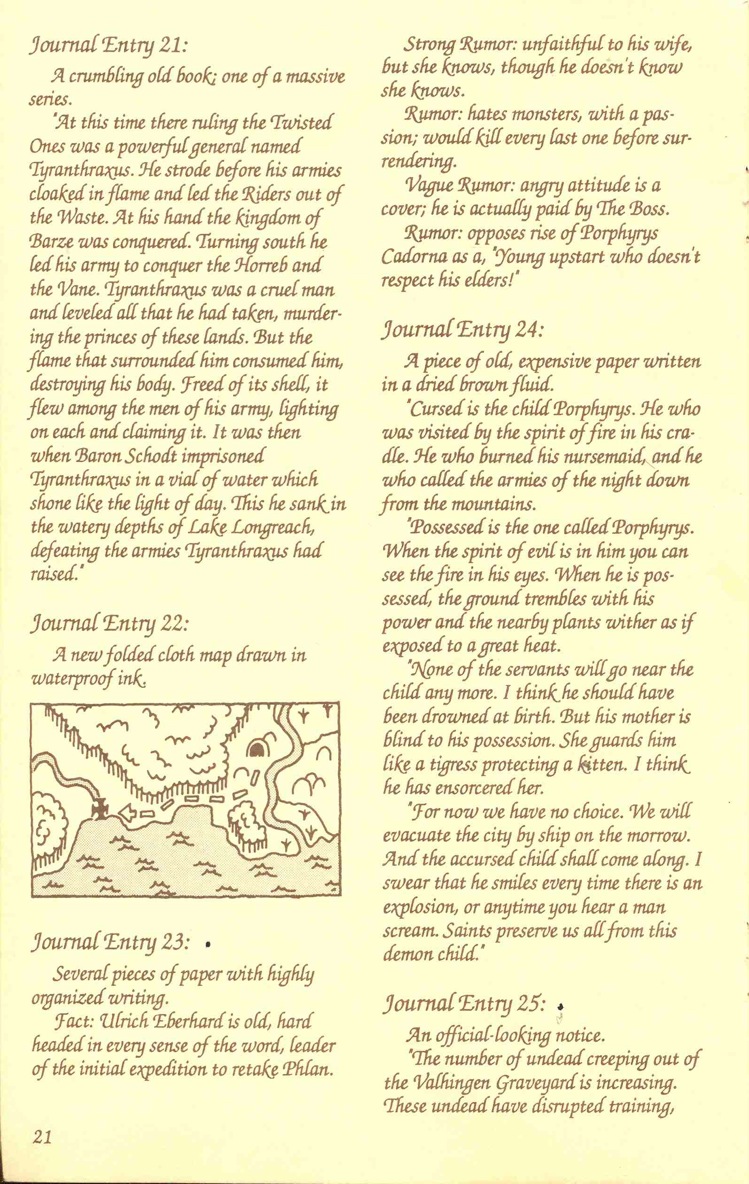 Journal Entry 21:
A crumbling old book; one of a massive
series.
"At this time there ruling the Twisted
Ones was a powerful general named
Tyranthraxus. He strode before his armies
cloaked in flame and led the Riders out of
the Waste. At his hand the kingdom of
Barze was conquered. Turning south he
led his army to conquer the Horreb and
the Vane. Tyranthraxus was a cruel man
and leveled all that he had taken, murder-
ing the princes of these lands. But the
flame that surrounded him consumed him,
destroying his body. Freed of its shell, it
flew among the men of his army, lighting
on each and claiming it. It was then
when Baron Schodt imprisoned
Tyranthraxus in a vial of water which
shone like the light of day. This he sank in
the watery depths of Lake Longreach,
defeating the armies Tyranthraxus had
raised."
Journal Entry 22:
A new folded cloth map drawn in
waterproof ink.
Journal Entry 23:
Several pieces of paper with highly
organized writing.
Fact: Ulrich Eberhard is old, hard
headed in every sense of the word, leader
of the initial expedition to retake Phlan.
21
Strong Rumor: unfaithful to his wife,
but she knows, though he doesn't know
she knows.
Rumor: hates monsters, with a pas-
sion; would kill every last one before sur-
rendering.
Vague Rumor: angry attitude is a
cover; he is actually paid by The Boss.
Rumor: opposes rise of Porphyrys
Cadorna as a, "Young upstart who doesn't
respect his elders!"
Journal Entry 24:
A piece of old, expensive paper written
in a dried brown fluid.
"Cursed is the child Porphyrys. He who
was visited by the spirit of fire in his cra-
dle. He who burned his nursemaid, and he
who called the armies of the night down
from the mountains.
"Possessed is the one called Porphyrys.
When the spirit of evil is in him you can
see the fire in his eyes. When he is pos-
sessed, the ground trembles with his
power and the nearby plants wither as if
exposed to a great heat.
"None of the servants will go near the
child any more. I think he should have
been drowned at birth. But his mother is
blind to his possession. She guards him
like a tigress protecting a kitten. I think
he has ensorcered her.
"For now we have no choice. We will
evacuate the city by ship on the morrow.
And the accursed child shall come along. I
swear that he smiles every time there is an
explosion, or anytime you hear a man
scream. Saints preserve us all from this
demon child."
Journal Entry 25:
An official-looking notice.
"The number of undead creeping out of
the Valhingen Graveyard is increasing.
These undead have disrupted training,